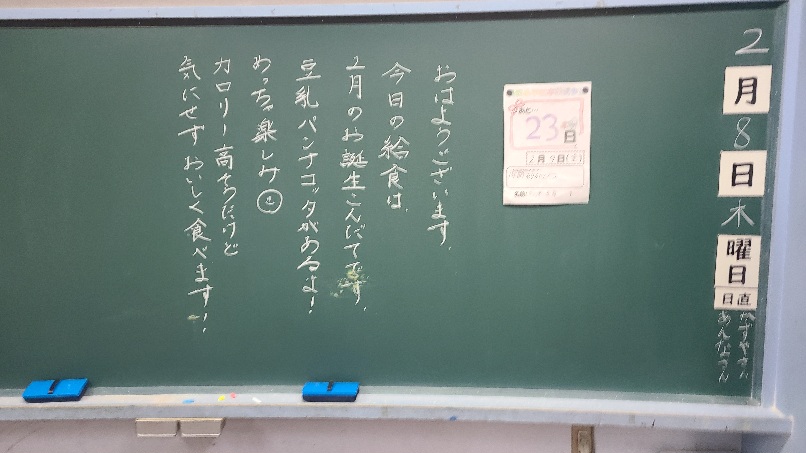 2月8日木曜日
日直
かずやさん
あんなさん
23日
2月9日(金)
おはようございます。
今日の給食は、
2月のお誕生こんだてです。
豆乳パンナコッタがあるよ!
めっちゃ楽しみ
カロリー高そうだけど
気にせずおいしく食べます!